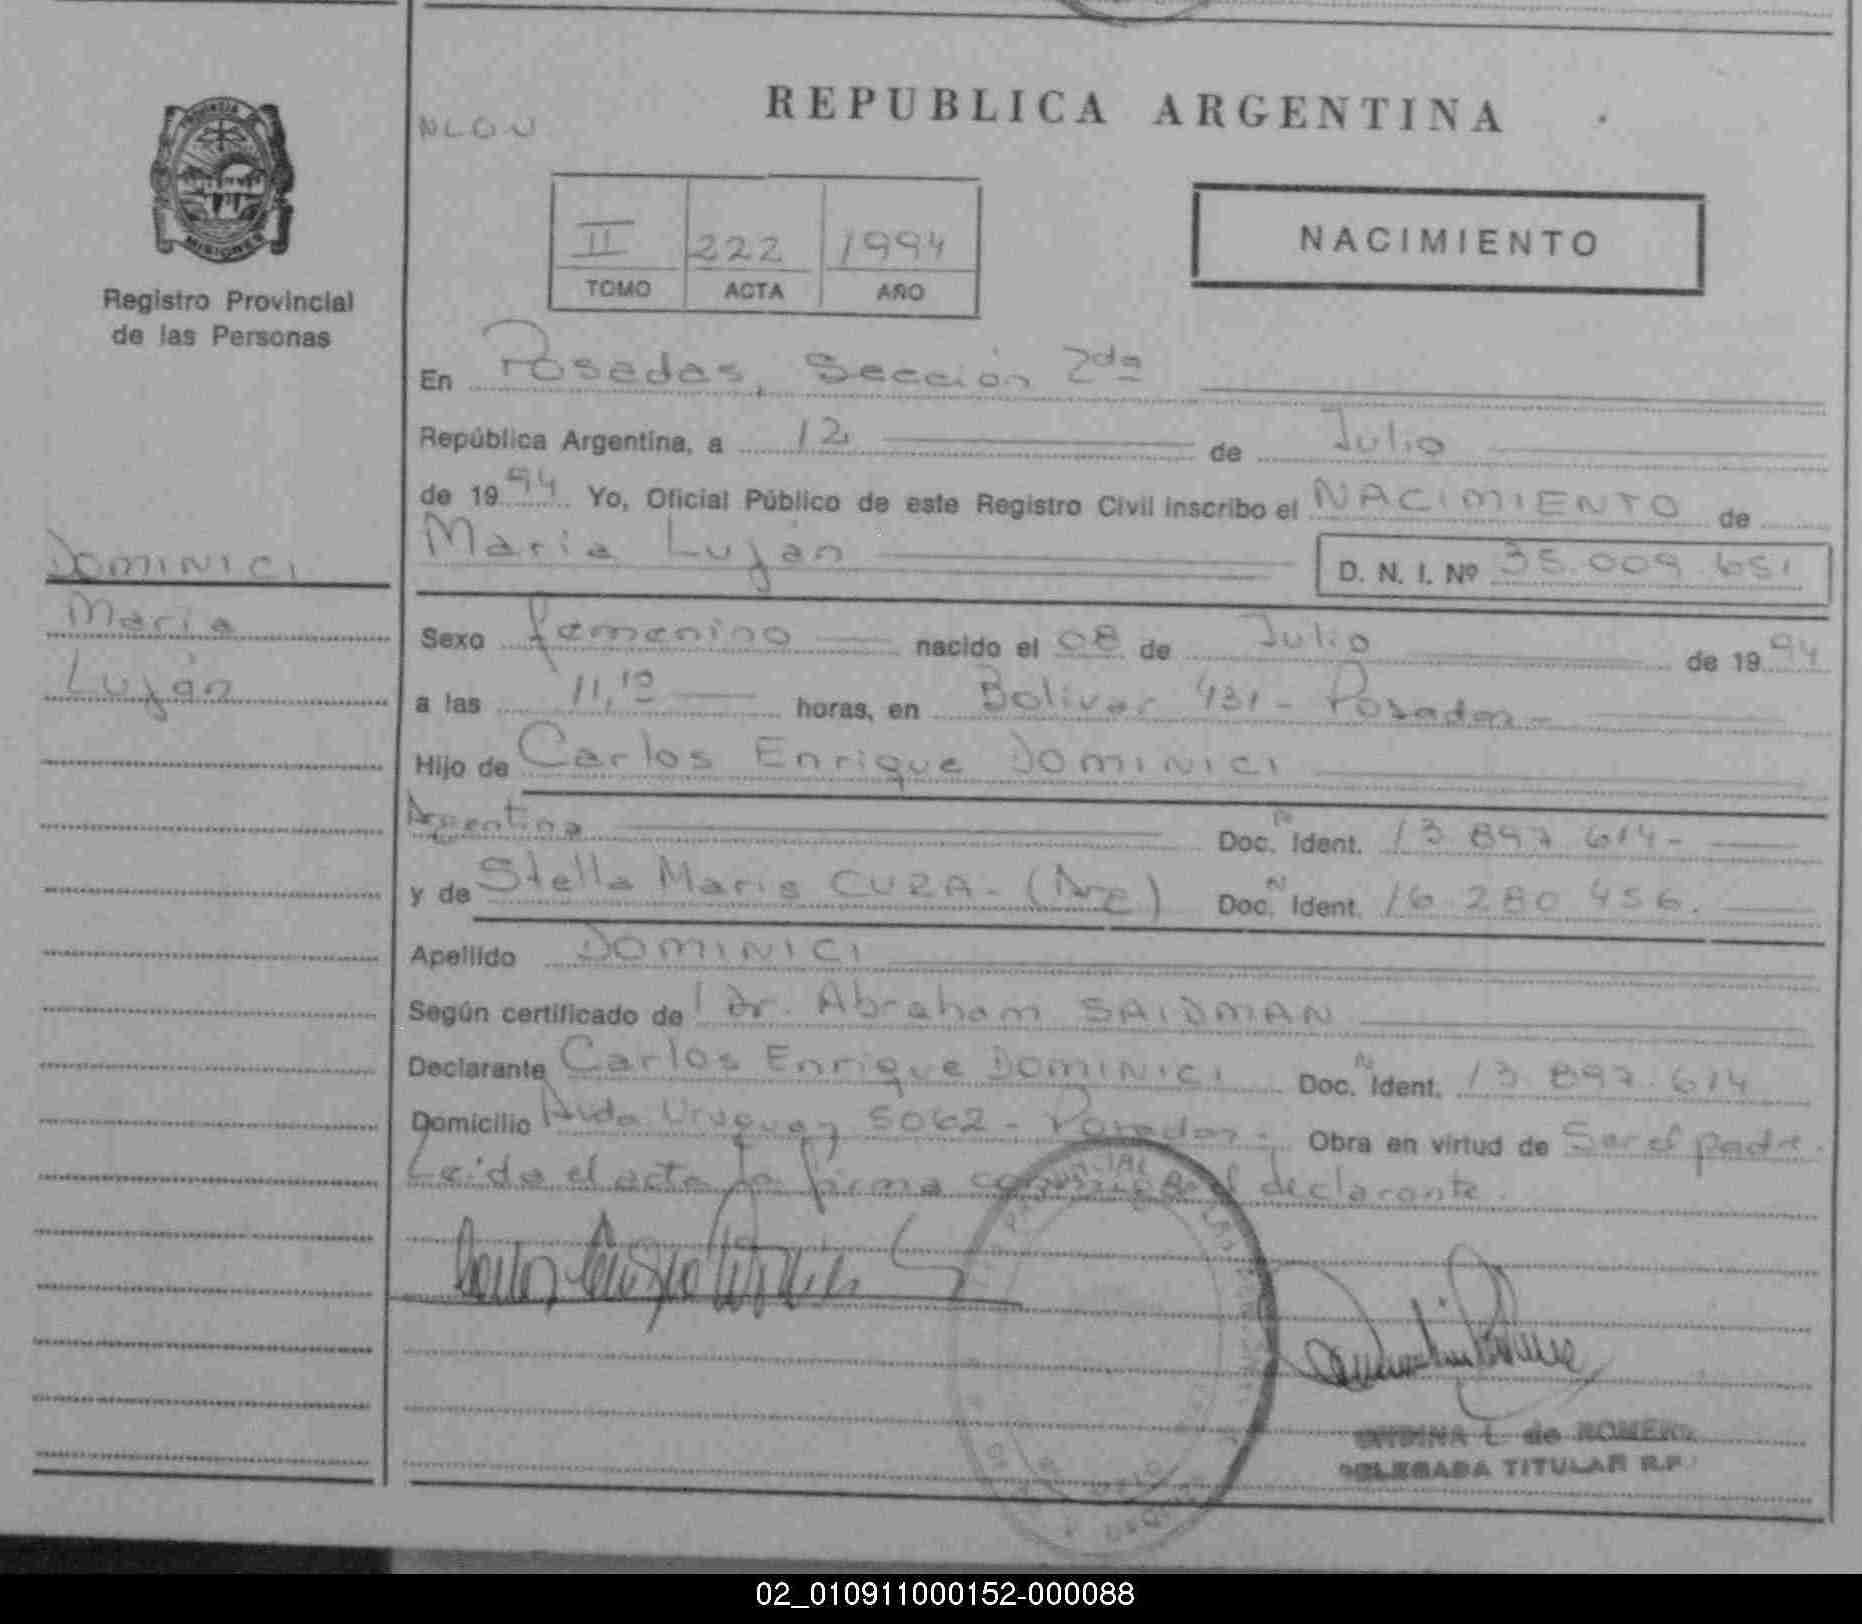 REPUBLICA ARGENTINA
NLOU
PROVINCIA DE
MISIONES
Registro Provincial
de las Personas
II 222 1994
TOMO ACTA AÑO
NACIMIENTO
En Posadas, Sección 2da
República Argentina, a 12 de Julio
de 1994 Yo, Oficial Público de este Registro Civil inscribo el NACIMIENTO de
María Luján
D. N. I. Nº 35.009.651
DOMINICI
María
Luján
Sexo femenino nacido el 08 de Julio de 1994
a las 11,10 horas, en Bolivar 431 - Posadas -
Hijo de Carlos Enrique DOMINICI
Argentina Doc. N Ident. 13 897 614 -
y de Stella Maris CUZA - (Arg) Doc. N Ident. 16 280 456.
Apellido DOMINICI
Según certificado de Dr. Abraham SAIDMAN
Declarante Carlos Enrique DOMINICI Doc. N Ident. 13.897.614
Domicilio Avda Uruguay 5062 - Posadas - Obra en virtud de Ser el padre.
Leida el acta la firma conmigo el declarante.
L. de ROMERO
DELEGADA TITULAR R.P.
02_010911000152-000088